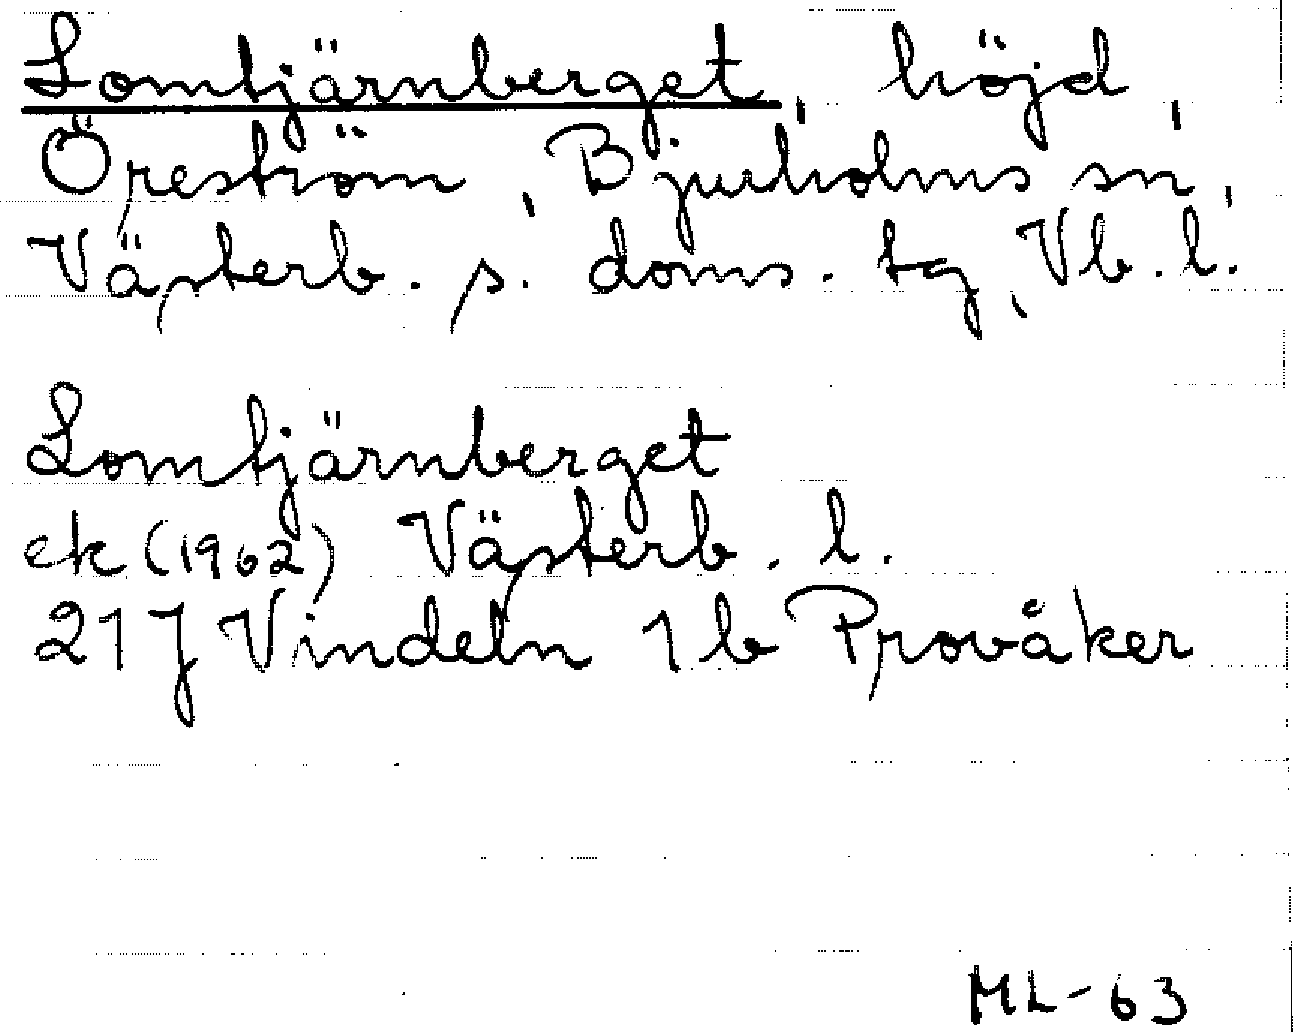 Lomtjärnberget, höjd,
Öreström, Bjurholms sn,
Västerb. s. doms. tg, Vb. l.
Lomtjärnberget
ek (1962) Västerb. l.
21J Vindeln 1b Provåker
ML-63